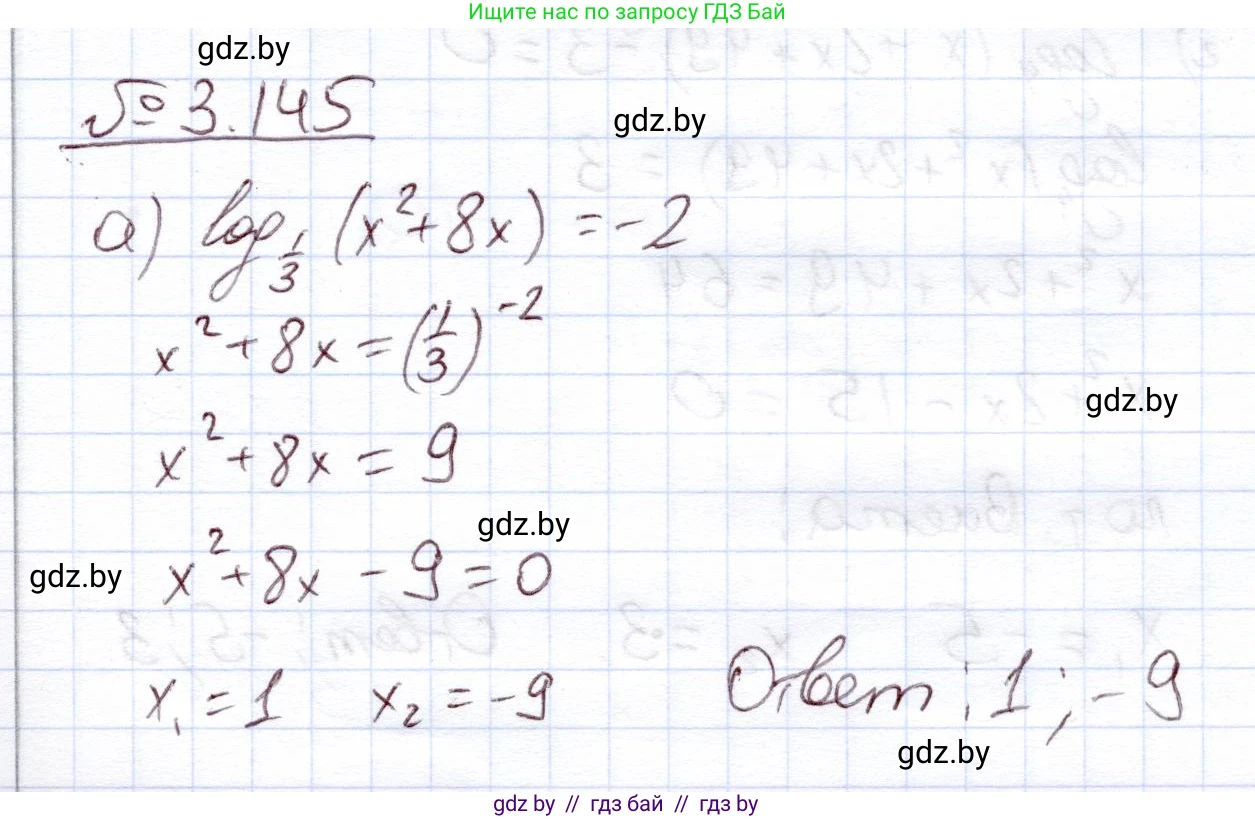 Ищите нас по запросу ГДЗ Бай
gdz.by
№ 3.145
gdz.by
а) log_{1/3} (x² + 8x) = -2
x² + 8x = (1/3)^{-2}
gdz.by
x² + 8x = 9
gdz.by
gdz.by
x² + 8x - 9 = 0
x₁ = 1 x₂ = -9
Ответ: 1; -9
gdz.by
gdz.by // гдз бай // гдз by